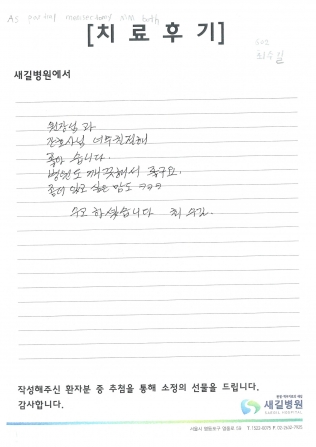 [치료후기]
새길병원에서
원장님과
간호사님 너무친절해
좋아 습니다.
병원도 깨끗해서 좋구요.
좀더 있고 싶은 맘도 ㅋㅋㅋ
수고 하셨습니다 최수길
작성해주신 환자분 중 추첨을 통해 소정의 선물을 드립니다.
감사합니다.
새길병원
SAEGIL HOSPITAL